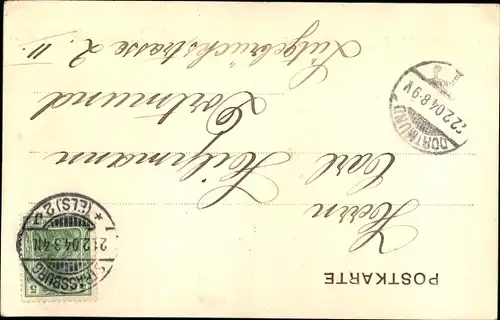 POSTKARTE
Herrn
Carl Heilrmann
Dortmund
Lütgebrückstrasse 2. II.
STRASSBURG
21.2.04.3-4N.
* (ELS) 2 d
5
DORTMUND
22.2.04.8-9V.